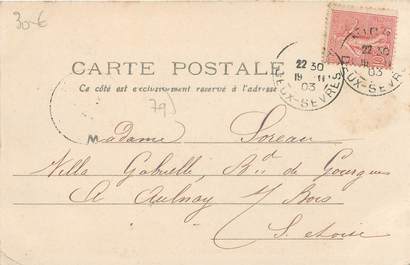 30-€
22 30
19 - 11
03
DEUX-SEVRES
22 30
03
DEUX-SEVRES
CARTE POSTALE
Ce côté est exclusivement réservé à l'adresse
79)
Madame Soreau
Villa Gabrielle, B<sup>d</sup> de Gourgues
A Aulnay s/ Bois
S. et oise